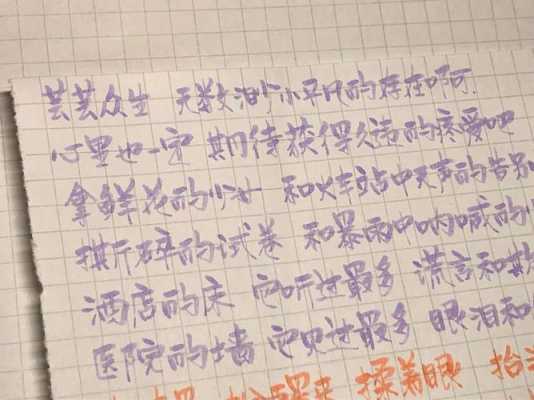 芸芸众生 无数渺小平凡的存在啊
心里也一定 期待获得久违的疼爱吧
拿鲜花的少女 和火车站中无声的告别
撕碎的试卷 和暴雨中呐喊的
酒店的床 它听过最多 谎言和欺
医院的墙 它见过最多 眼泪和
醒来 揉着眼 抬